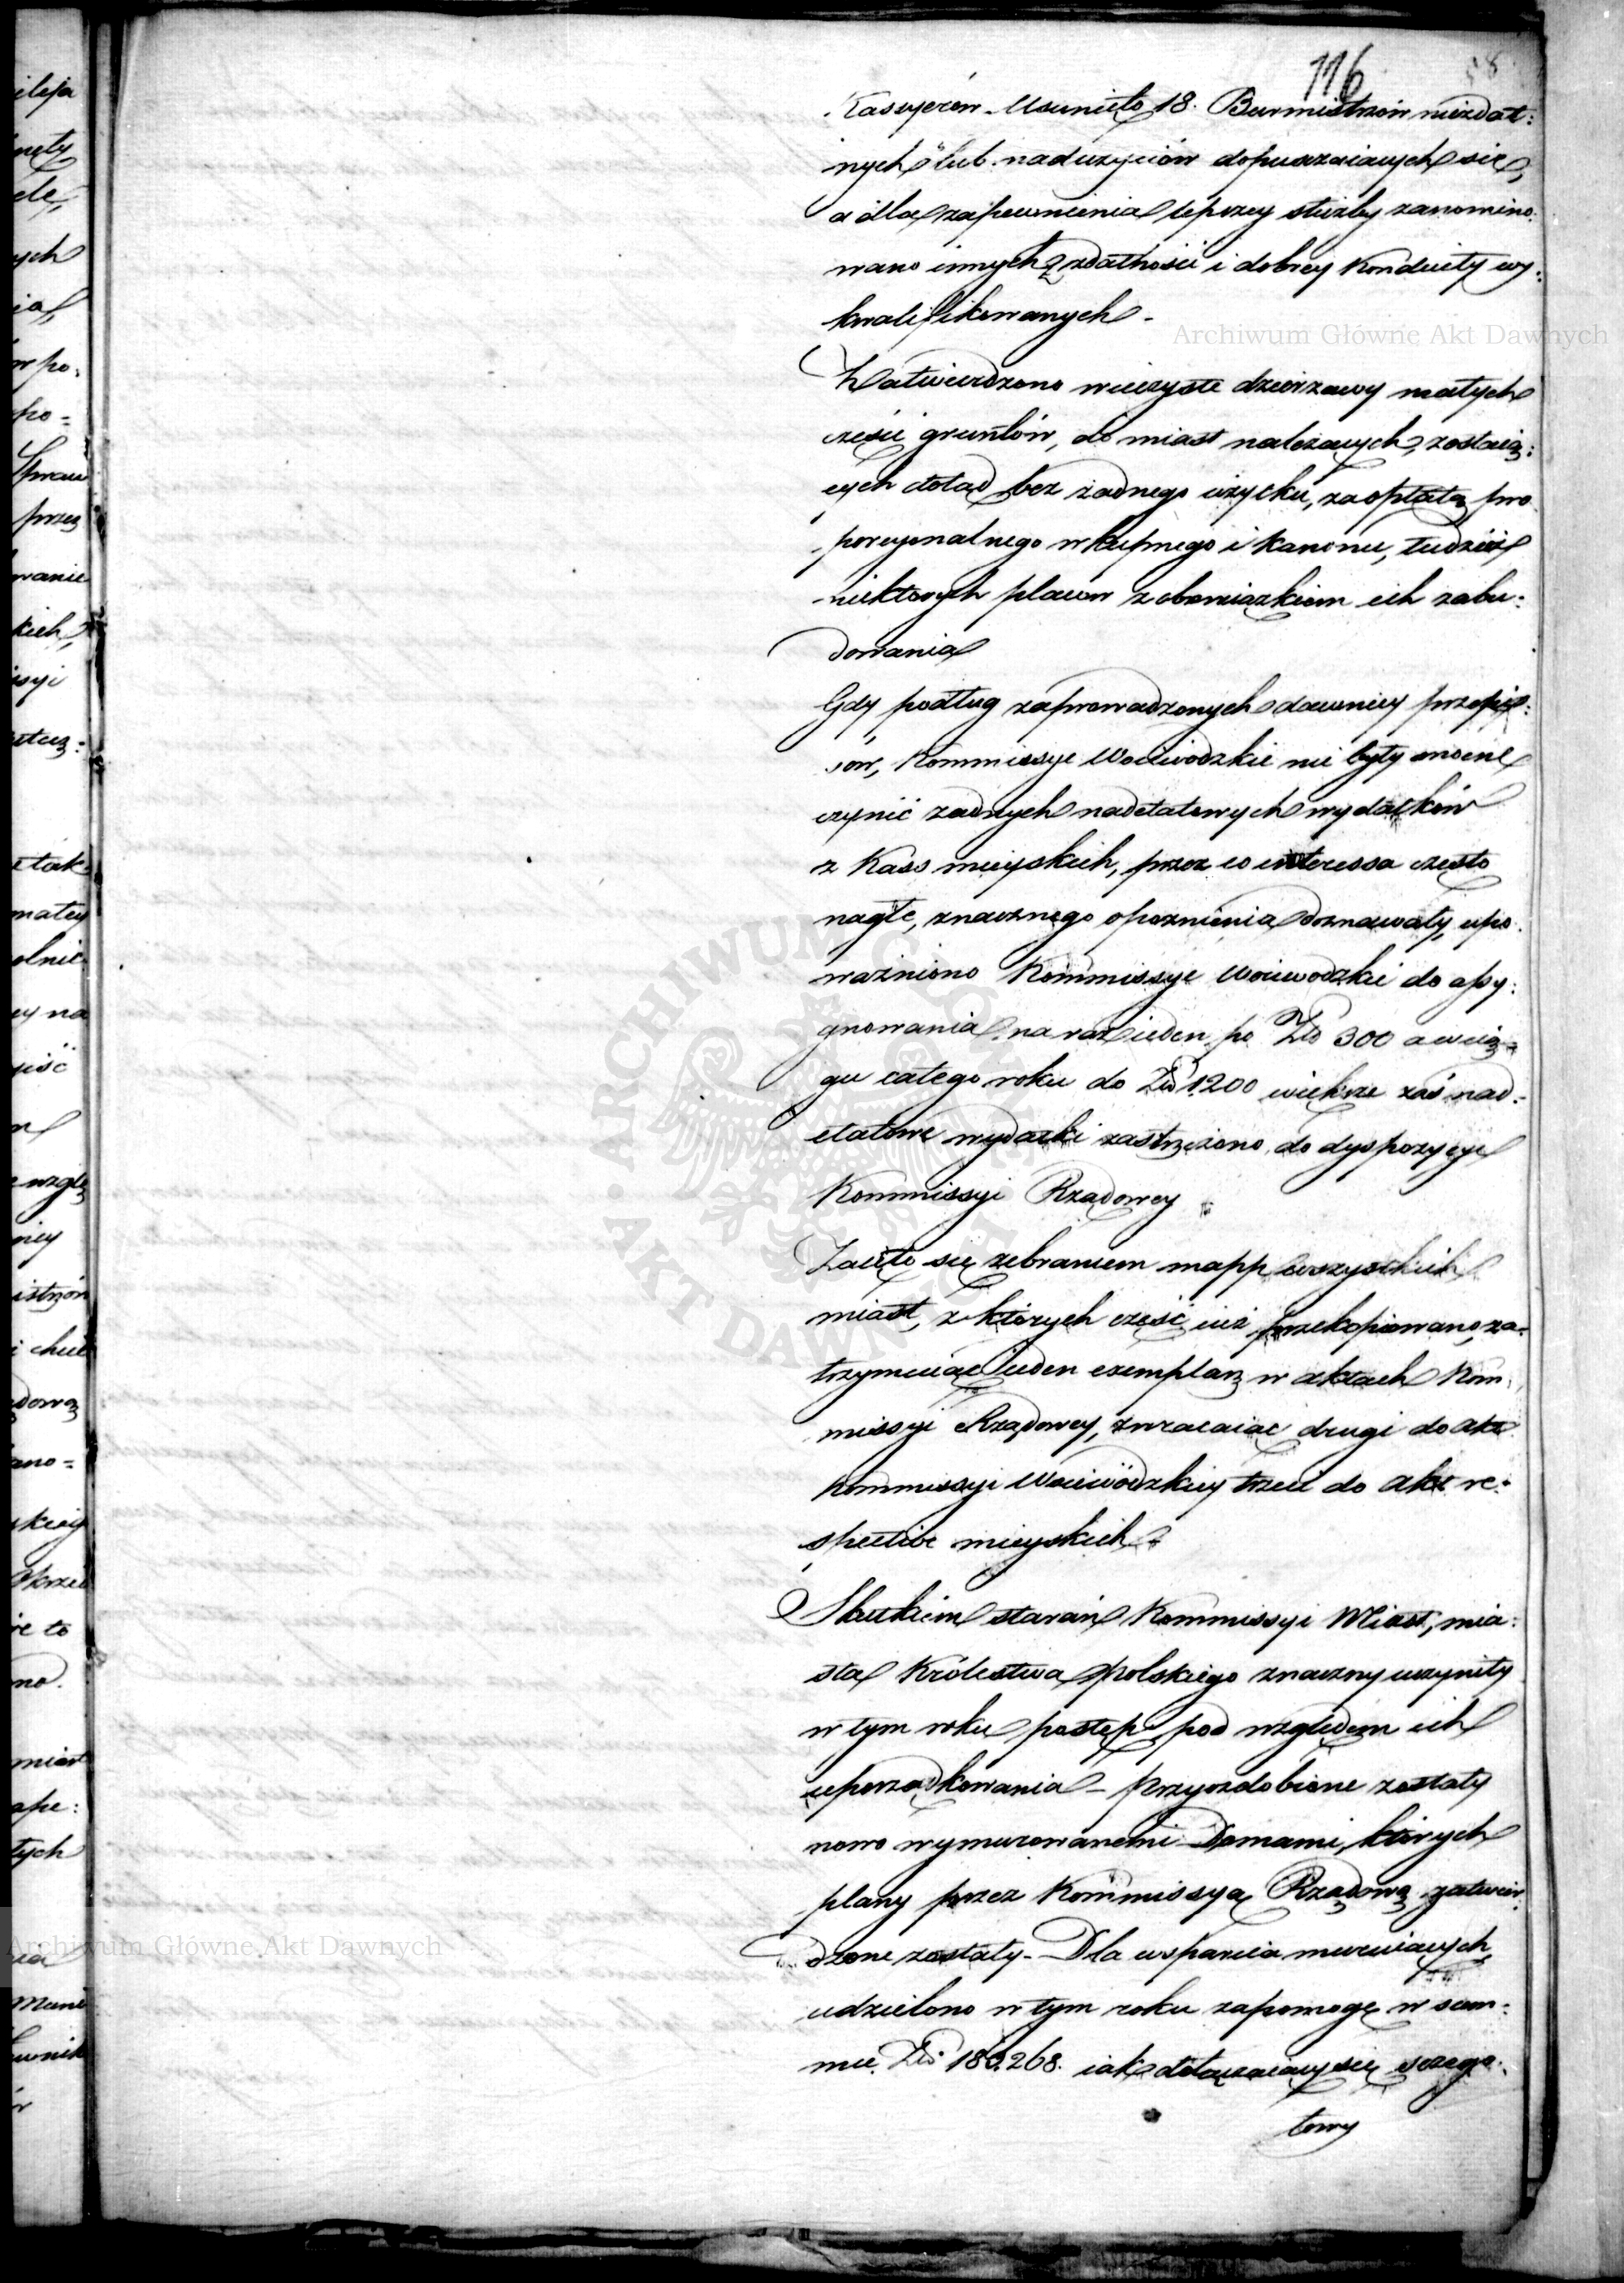 116
Kassyerów. Usunięto 18. Burmistrzów niezdat:
nych lub nadużyciów dopuszczaiących się,
a dla zapewnienia lepszey służby zanomino:
wano innych z zdatności i dobrey konduity wy:
kwalifikowanych.
Zatwierdzono wieczyste dzierzawy małych
części gruntów, do miast należących, zostaią:
cych dotąd bez żadnego użytku, za opłatą pro
porcyonalnego wkupnego i kanonu, tudzież
niektórych placów z obowiązkiem ich zabu:
dowania
Gdy podług zaprowadzonych dawniey przepi:
sów, Kommissye Woiewódzkie nie były mocne
czynić żadnych nadetatowych wydatków
z Kass mieyskich, przez co interessa często
nagłe, znacznego opoznienia doznawały, upo:
ważniono Kommissye Woiewódzkie do assy:
gnowania na raz ieden po Złł 300 a w cią=
gu całego roku do Złł 1200 większe zaś nad:
etatowe wydatki zastrzeżono do dyspozycyi
Kommissyi Rządowey
Zaięto się zebraniem mapp wszystkich
miast, z których część iuż przekopiowano, za:
trzymuiąc ieden exemplarz w aktach Kom:
missyi Rządowey, zwracaiąc drugi do akt
Kommissyi Woiewódzkiey trzeci do akt re:
spective mieyskich.
Skutkiem starań Kommissyi Miast, mia:
sta Królestwa Polskiego znaczny uczyniły
w tym roku postęp pod względem ich
uporządkowania – Przyozdobione zostały
nowo wymurowanemi Domami, których
plany przez Kommissyą Rządową zatwier
dzone zostały. Dla wsparcia muruiących,
udzielono w tym roku zapomogę w sum:
mie Złł. 186.268. iak dołączaiący się szczegó:
łowy
ileja
nęty
ych
w po:
po=
przez
wanie
kich,
issyi
tak
matey
ey na
względ
ney
istrzów
dową
ano=
skiey
że to
no.
miast
tych
Archiwum Główne Akt Dawnych
Archiwum Główne Akt Dawnych
ARCHIWUM GŁÓWNE AKT DAWNYCH